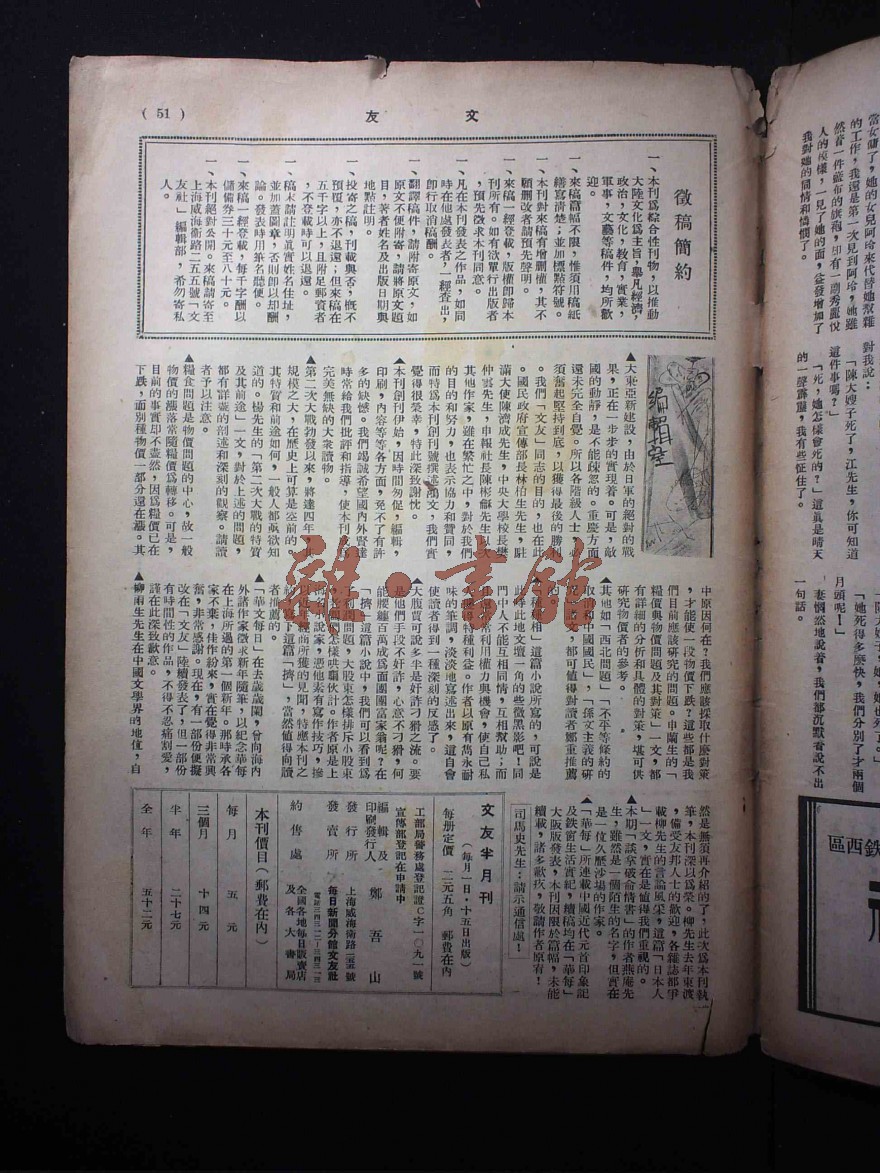 (51)
文友
徵稿簡約
一、本刊爲綜合性刊物,以推動
大陸文化爲主旨,舉凡經濟,
政治,文化,教育,實業,
軍事,文藝等稿件,均所歡
迎。
一、來稿篇幅不限,惟須用稿紙
繕寫清楚;並加標點符號。
一、本刊對來稿有增删權,其不
願删改者請預先聲明。
一、來稿一經登載,版權即歸本
刊所有。如有欲單行出版者
,預先徵求本刊同意。
一、凡在本刊發表之作品,如同
時在他處發表者,一經查出,
即行取消稿酬。
一、翻譯稿件,請附寄原文,如
原文不便附寄,請將原文題
目,著者姓名及出版日期與
地點註明。
一、投寄之稿,刊載與否,概不
預覆,亦不退還;但來稿在
五千字以上,且附足郵資者
,不登載時可以退還。
一、稿末請註明眞實姓名住址,
並加蓋圖章,否則卽以却酬
論。發表時用筆名聽便。
一、來稿一經登載,每千字酬以
儲備券三十元至八十元。
一、本刊絕對公開。來稿請寄至
上海威海衛路二五五號「文
友社」編輯部,希勿寄私
人。
編輯室
▲大東亞新建設,由於日軍的絕對的戰
果,正在一步步的實現着。可是,敵
國的動靜,是不能疎忽的。重慶方面
還未完全自覺。所以各階級人士,必
須奮起堅持到底,以獲得最後的勝利
。我們「文友」同志的目的,也在此
。國民政府宣傳部長林柏生先生,駐
滿大使陳濟成先生,中央大學校長樊
仲雲先生,申報社長陳彬龢先生,次
其他作家,雖在繁忙之中,對於我們
的目的和努力,也表示協力和贊同,
而特爲本刊創刊號撰述鴻文,我們實
覺得很榮幸,特此深致謝忱。
▲本刊創刊伊始,因時間匆促,編輯,
印刷,內容等等各方面,免不了有許
多的缺憾。我們竭誠希望國內外賢達
時常給我們批評和指導,使本刊成爲
完美無缺的大衆讀物。
▲第二次大戰勃發以來,將達四年,其
規模之大,在歷史上可算是空前的。
其特質和前途如何,一般人都亟欲知
道的。楊先生的「第二次大戰的特質
及其前途」一文,對於上述的問題,
都有詳袤的剖述和深刻的觀察。請讀
者予以注意。
▲糧食問題是物價問題的中心,故一般
物價的漲落常隨糧價爲轉移。可是,
目前的事實却不盡然,因爲糧價已在
下跌,而別種物價一部分還在漲。其
中原因何在?我們應該採取什麽對策
,才能使一段物價下跌?這些都是我
們目前應該研究的問題。申蘭生的「
糧價與物價問題及其對策」一文,都
有詳細的分析和具體的對策,堪可供
研究物價者的參考。
▲其他如「西北問題」「不平等條約的
取消和中國國民」,「孫文主義的研
究」諸文,都可值得對讀者鄭重推薦
的。
相」這篇小說所寫的,可說是
此時此地文壇一角的些微黑影吧!同
門中人不能互相同情,互相幫助;而
利用權力與機會,使自己私
得種利益。作者以原有雋永耐
味的筆調,淡淡地寫述出來,這自會
使讀者得到一種深刻的反感了。
▲大腹賈可說多半是奸詐刁猾之流。要
是他們手段不奸詐,心意不刁猾,何
能腰纏百萬成爲面團團富家翁呢?在
「擠」這篇小說中,我們可以看到爲
了利潤問題,大股東怎樣排斥小股東
怎樣哄騙伙計。作者原是上
海有名小說家,憑他素有寫作技巧,摻
以近年經商所獲的見聞,特應本刊之
約寫下這篇「擠」,當然值得向讀
者推薦的。
▲「華文每日」在去歲歲闌,曾向海內
外諸作家徵求新年隨筆,以紀念華每
在上海所過的第一個新年。那時承各
家不棄,佳作紛來,實在覺得非常興
奮,非常感謝。現在,有一部份便擬
改在「文友」陸續發表了,但一部份
有時間性的作品,不得不忍痛割愛,
謹在此深致歉意。
▲柳雨生先生在中國文學界的地位,自
然是無須再介紹的了,此次爲本刊執
筆,本刊深以爲榮。柳先生去年東渡
,備受友邦人士的歡迎,各雜誌都爭
載柳先生的言論風采,這篇「日本人
」一文,實在是值得我們重視的。
▲本期「談拿破命情書」的作者燕庵先
生,雖然是一個陌生的名字,但實在
是一位久歷沙場的作家。
▲「華每」所連載中國近代元首印象記
及鉄窗生活實紀,續稿均在「華每」
大阪版發表,本刊因限於篇幅,未能
續載,諸多歉疚,敬請作者原宥!
司馬史先生:請示通信處!
文友半月刊
(每月一日・十五日出版)
每册定價 二元五角 郵費在內
工部局警務處登記證C字一〇九一號
宣傳部登記在申請中
編輯及
印刷發行人 鄭吾山
發行所 上海威海衛路二五五號
發賣所 每日新聞分館文友社
約售處 全國各地每日販賣店
及各大書局
本刊價目(郵費在內)
每月 五元
三個月 十四元
半年 二十七元
全年 五十二元
雜・書館
當女傭了,她的女兒阿玲來代替她幫雜
的工作,我還是第一次見到阿玲,她雖
人的模樣,一見了她的面,益發增加了
我對她的同情和憐憫了。
對我說:
「陳大嫂子死了,江先生,你可知道
這件事嗎?」
「死,她怎樣會死的?」這眞是晴天
的一聲霹靂,我有些怔住了。
月頭呢!」
「她死得多麽快,我們分別了才兩個
妻惘然地說着,我們都沉默着說不出
一句話。
鉄西區